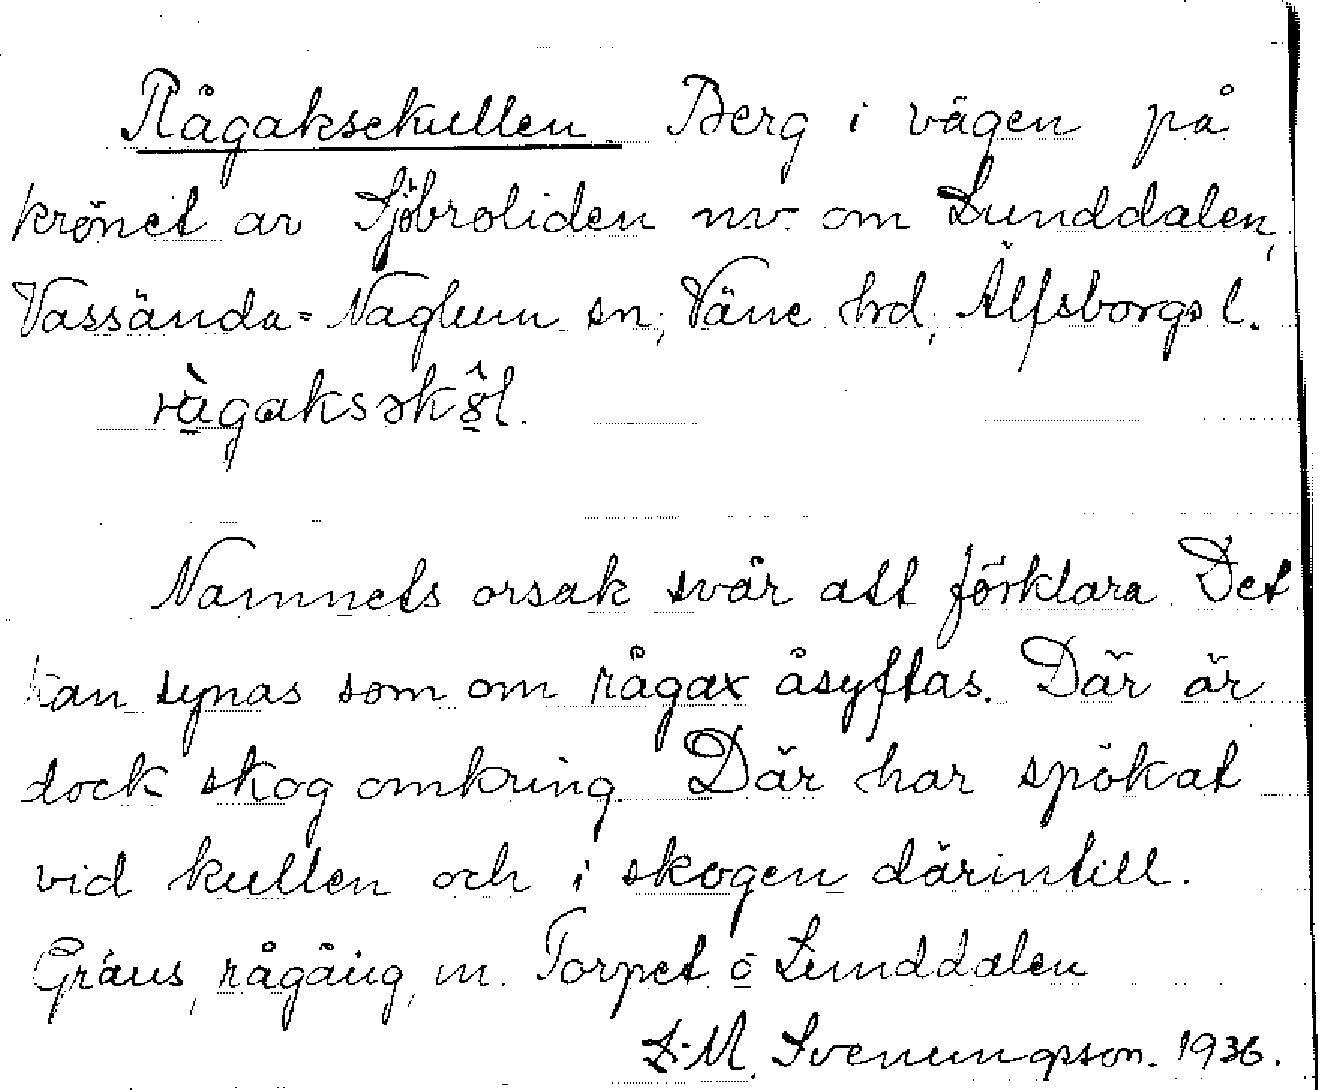 Rågaksekullen Berg i vägen på
krönet av Sjöbroliden nv. om Lunddalen,
Vassända-Naglum sn, Väne hrd, Älfsborgs l.
rågaksəkŏ́l.
Namnets orsak svår att förklara Det
kan synas som om rågax åsyftas. Där är
dock skog omkring. Där har spökat
vid kullen och i skogen därintill.
Gräns, rågång, m. Torpet o Lunddalen
L.M. Svenungsson. 1936.